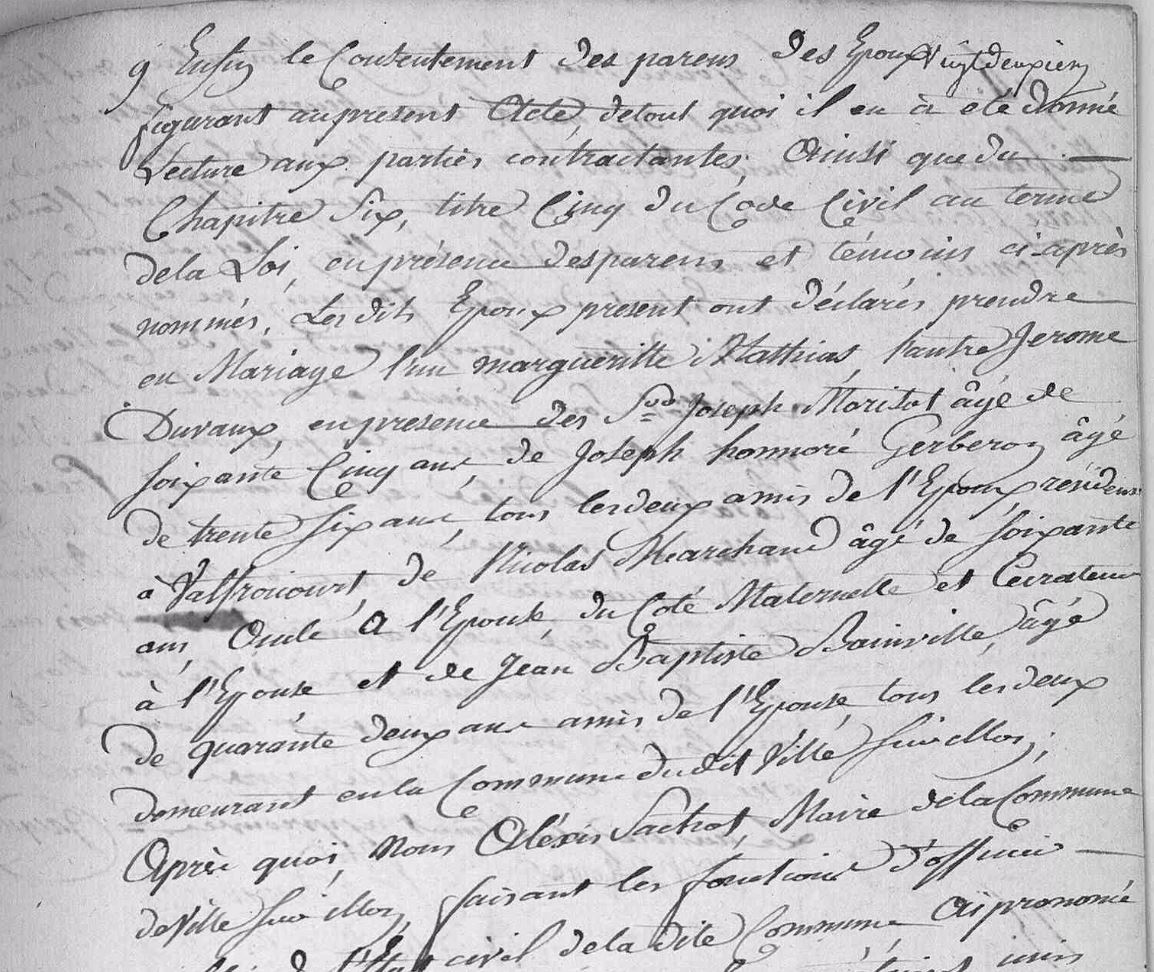 9 Enfin le Consentement des parens des Epoux vingtdeuxien
figurant au present Acte, detout quoi il en à été donné
Lecture aux parties contractantes, Ainsi que du
Chapitre Six, titre Cinq du Code Civil au terme
dela Loi, en présence desparens et témoins ci-après
nommés, Lesdits Epoux present ont déclarés prendre
en Mariage l'un margueritte Mathias, l'autre Jerome
Duvaux, en presence des Srs Joseph Moritot âgé de
soixante Cinq ans, de Joseph honnoré Gerberon âgé
de trente six ans, tous lesdeux amis de l'Epoux, résidens
à Valfroicourt, de Nicolas Marchand âgé de soixante
ans, Oncle A l'Epouse, du Coté Maternelle et Curateur
à l'Epouse et de Jean Baptiste Bainville, âgé
de quarante deux ans amis de l'Epouse, tous lesdeux
demeurant enla Commune dudit Ville sur illon;
Après quoi, Nous Aléxis Sachot, Maire dela Commune
deVille sur illon, faisant les fonctions d'officier
de l'Etat civil dela dite Commune Ai pronomé